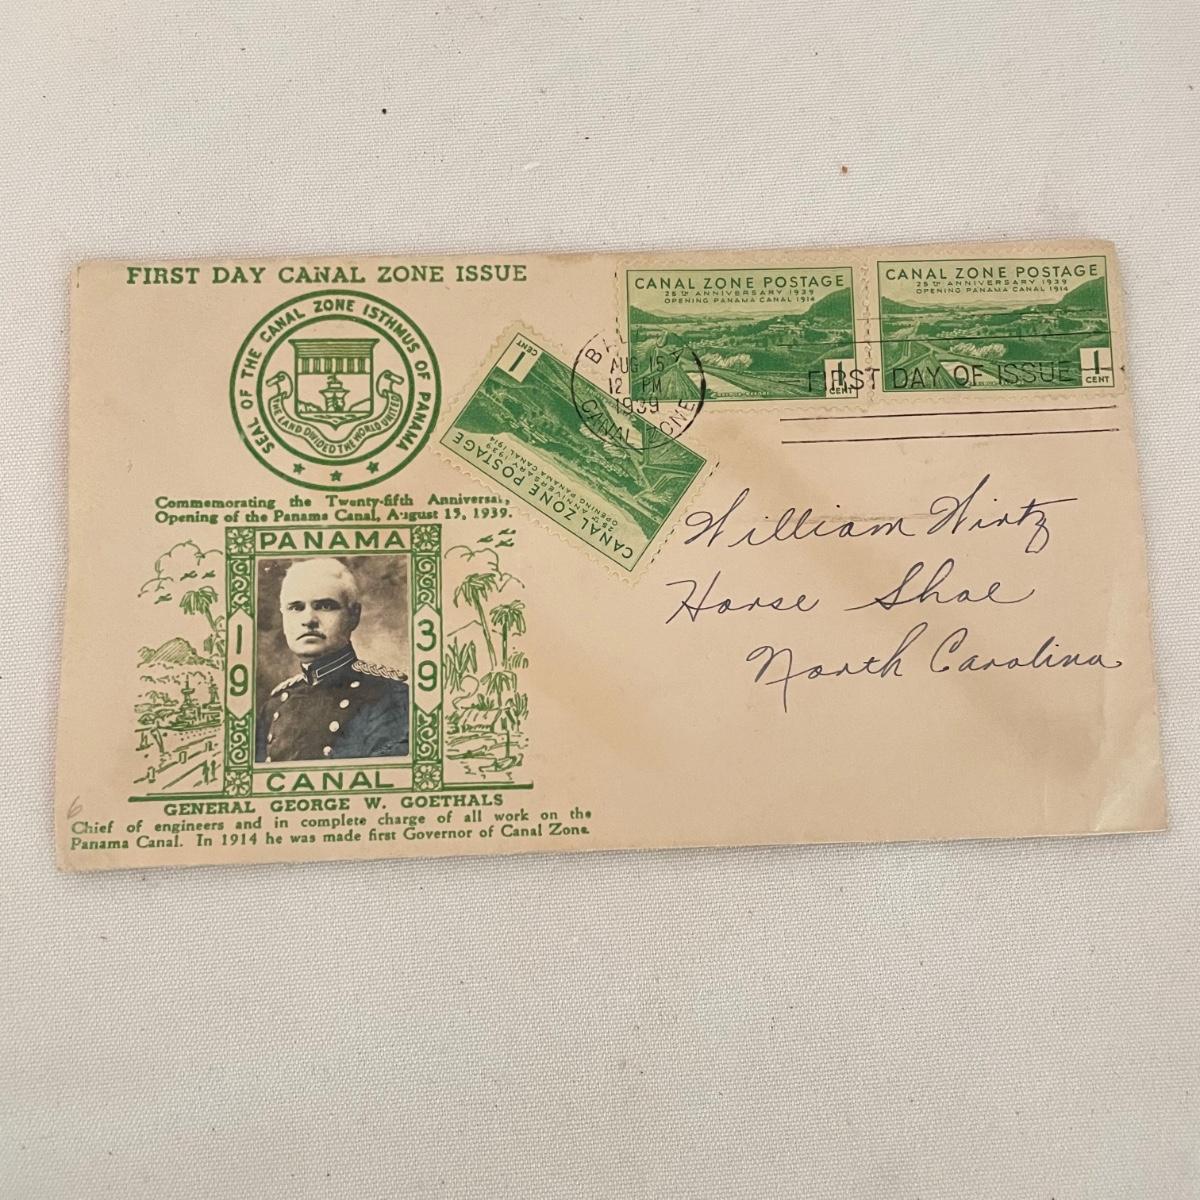 FIRST DAY CANAL ZONE ISSUE
SEAL OF THE CANAL ZONE ISTHMUS OF PANAMA
THE LAND DIVIDED THE WORLD UNITED
Commemorating the Twenty-fifth Anniversary,
Opening of the Panama Canal, August 15, 1939.
PANAMA
1939
CANAL
GENERAL GEORGE W. GOETHALS
Chief of engineers and in complete charge of all work on the
Panama Canal. In 1914 he was made first Governor of Canal Zone.
6
1
CENT
CANAL ZONE POSTAGE
25TH ANNIVERSARY 1939
OPENING PANAMA CANAL 1914
AUG 15
12 PM
1939
CANAL ZONE
CANAL ZONE POSTAGE
25TH ANNIVERSARY 1939
OPENING PANAMA CANAL 1914
1
CENT
CANAL ZONE POSTAGE
25TH ANNIVERSARY 1939
OPENING PANAMA CANAL 1914
1
CENT
FIRST DAY OF ISSUE
William Wirtz
Horse Shoe
North Carolina